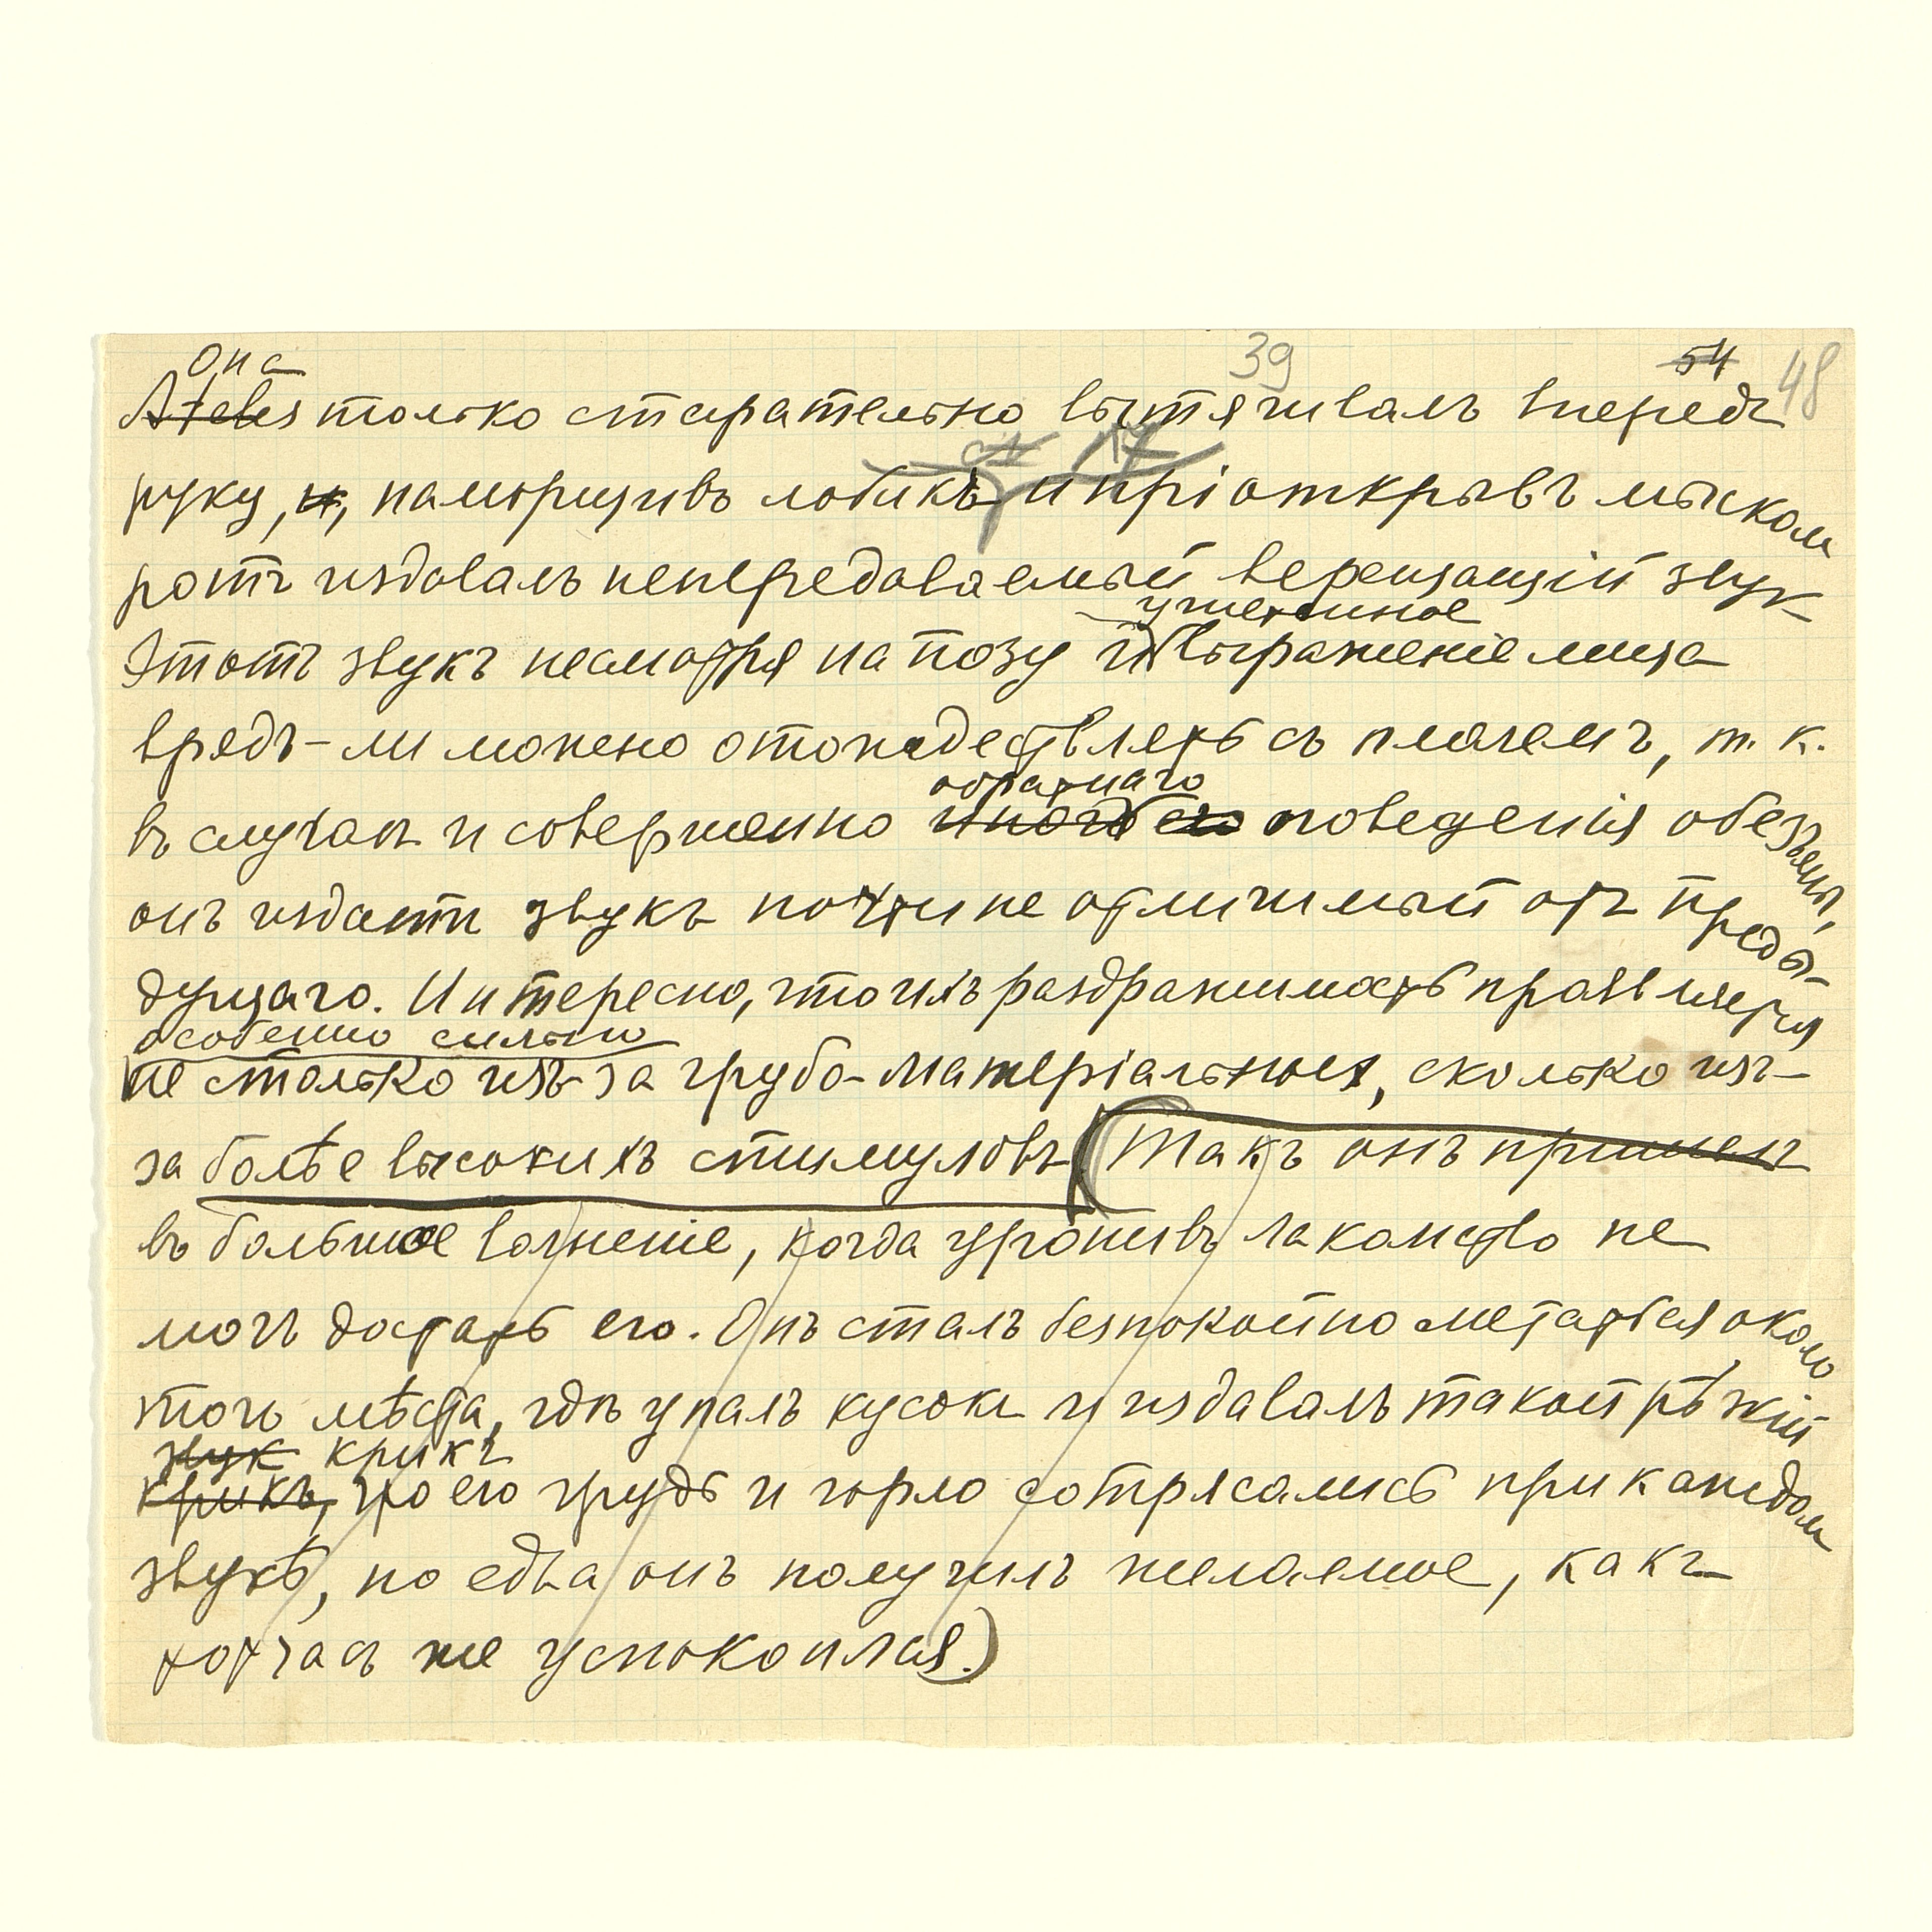 39 54 48
она
Ateles только старательно вытягивалъ впередъ
руку, и, наморщивъ лобикъ и пріоткрывъ мыскомъ
ротъ издавалъ непередаваемый верещащій звук
умиленное
Этотъ звукъ несмотря на позу и выраженіе лица
врядъ-ли можно отождествлять съ плачемъ, т. к.
обратнаго
въ случаѣ и совершенно иного его поведенія обезьяны,
онъ издаетъ звукъ почти не отличимый отъ преды-
дущаго. Интересно, что ихъ раздражимость проявляется
особенно сильно
не столько изъ-за грубо-матеріальныхъ, сколько изъ-
за болѣе высокихъ стимуловъ (Такъ онъ пришелъ
въ большое волненіе, когда уронивъ лакомство не
могъ достать его. Онъ сталъ безпокойно метаться около
того мѣста, гдѣ упалъ кусокъ и издавалъ такой рѣзкій
звук крикъ
крикъ, что его грудь и горло сотрясались при каждомъ
звукѣ, но едва онъ получилъ желаемое, какъ
тотчасъ же успокоился.)